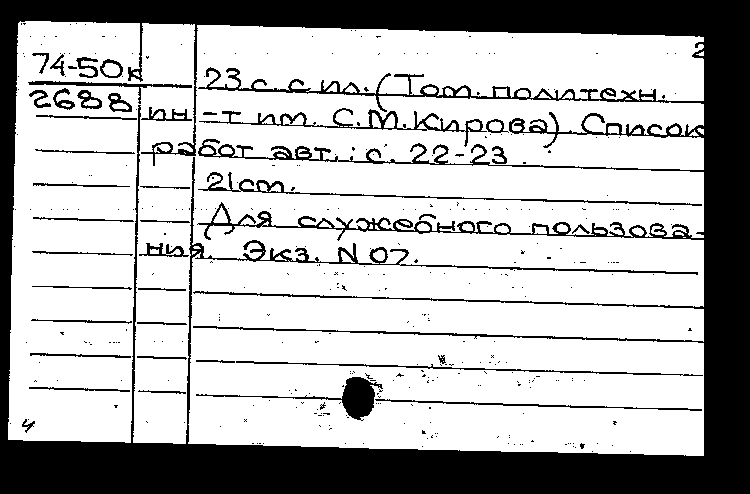 2
74-50к
2688
23 с. с ил. (Том. политехн.
ин-т им. С.М.Кирова). Список
работ авт.: с. 22-23.
21см.
Для служебного пользова-
ния. Экз. N 07.
4